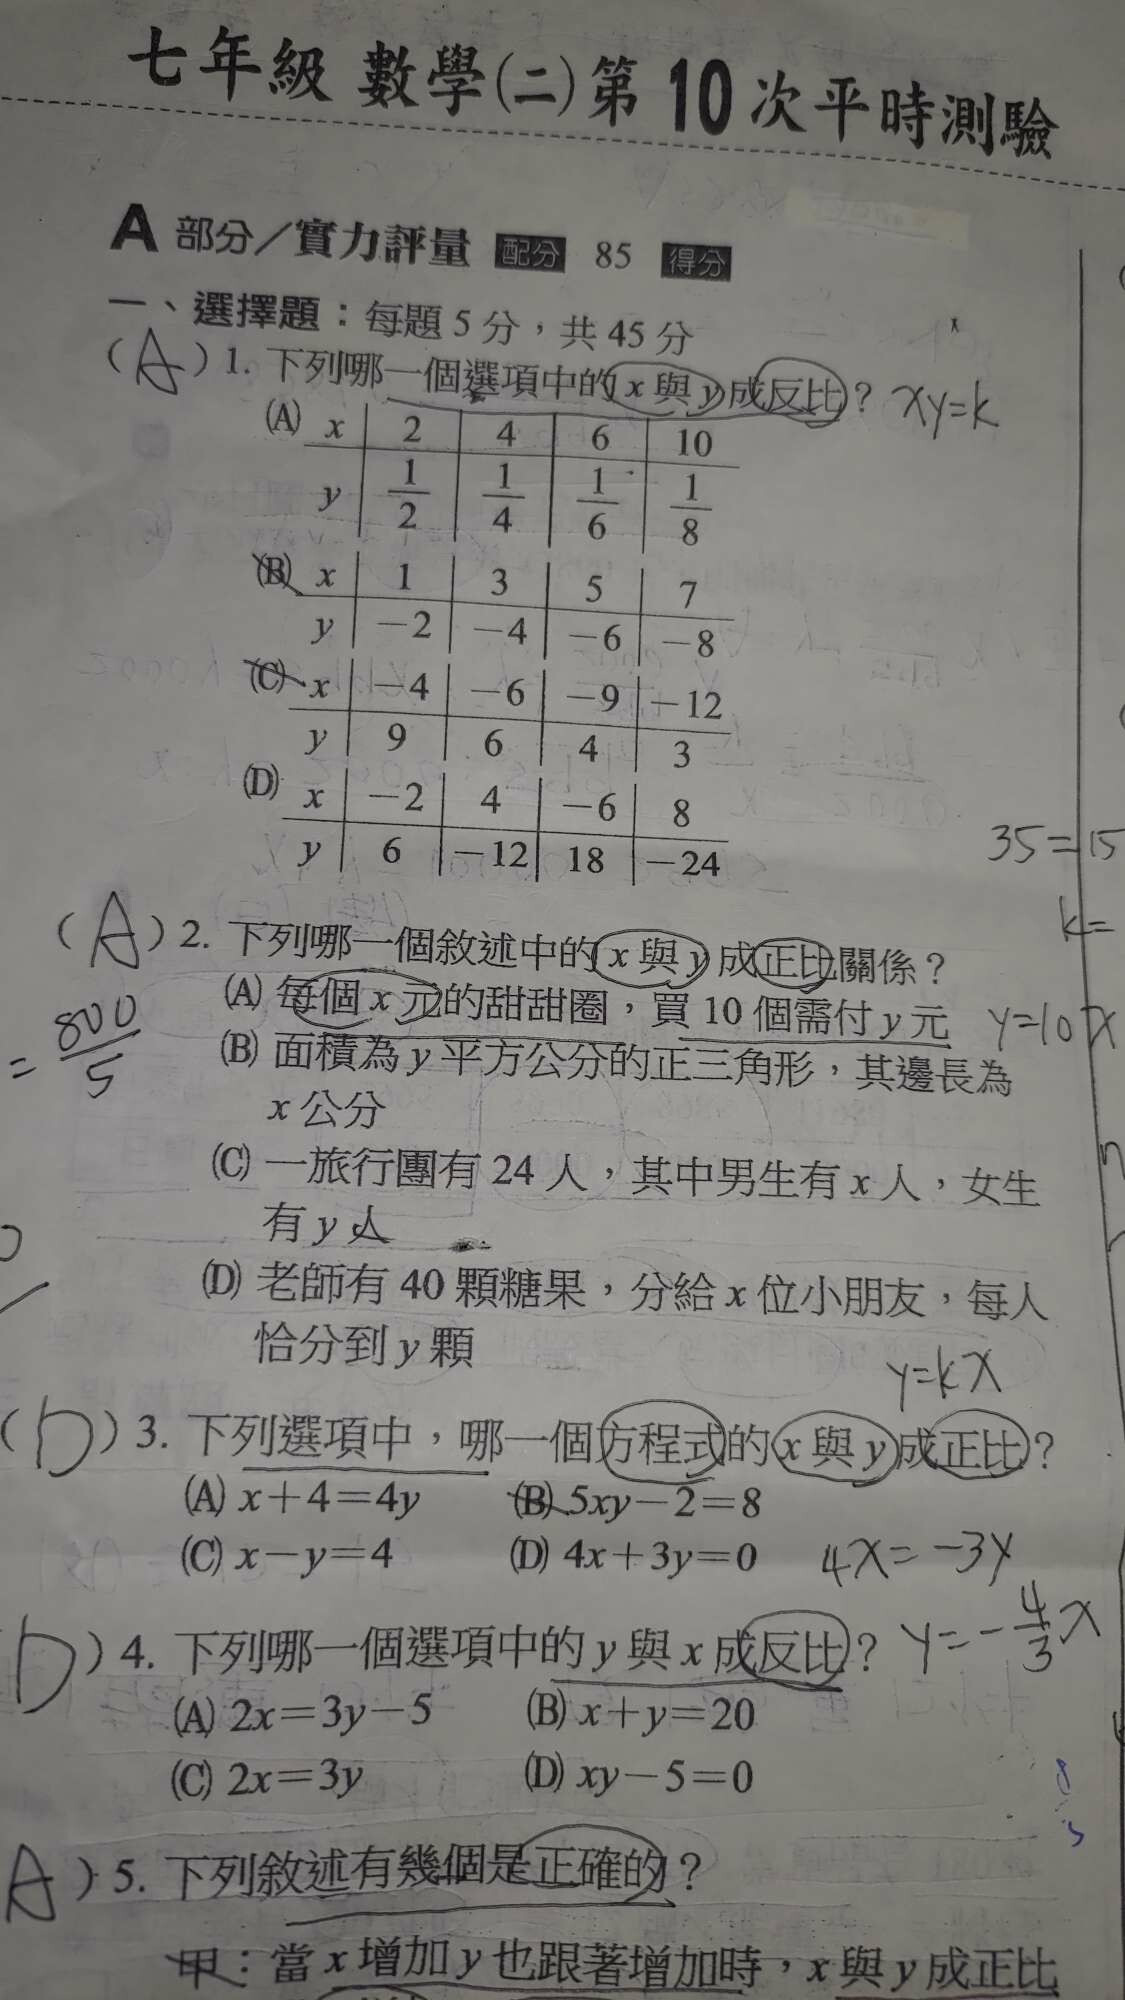 七年級 數學(二)第10次平時測驗
A 部分／實力評量 配分 85 得分
一、選擇題：每題5分，共45分
(A) 1. 下列哪一個選項中的 x 與 y 成反比？ xy=k
(A) x 2 4 6 10
y 1/2 1/4 1/6 1/8
(B) x 1 3 5 7
y −2 −4 −6 −8
(C) x −4 −6 −9 −12
y 9 6 4 3
(D) x −2 4 −6 8
y 6 −12 18 −24
35=15
k=
(A) 2. 下列哪一個敘述中的 x 與 y 成正比關係？
(A) 每個 x 元的甜甜圈，買 10 個需付 y 元 y=10x
= 800/5
(B) 面積為 y 平方公分的正三角形，其邊長為
x 公分
(C) 一旅行團有 24 人，其中男生有 x 人，女生
有 y 人
(D) 老師有 40 顆糖果，分給 x 位小朋友，每人
恰分到 y 顆
y=kx
(D) 3. 下列選項中，哪一個方程式的 x 與 y 成正比？
(A) x+4=4y (B) 5xy−2=8
(C) x−y=4 (D) 4x+3y=0 4x=−3y
y=−4/3x
(D) 4. 下列哪一個選項中的 y 與 x 成反比？
(A) 2x=3y−5 (B) x+y=20
(C) 2x=3y (D) xy−5=0
A) 5. 下列敘述有幾個是正確的？
甲：當 x 增加 y 也跟著增加時，x 與 y 成正比